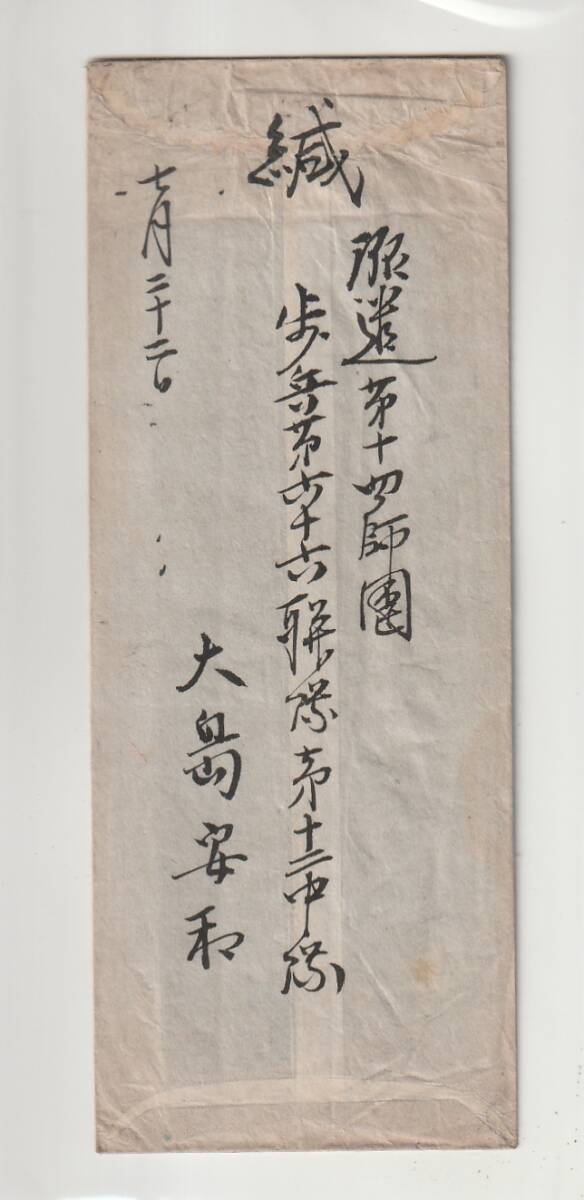 緘
派遣第十四師團
歩兵第六十六聯隊第十二中隊
大島安和
七月二十二日